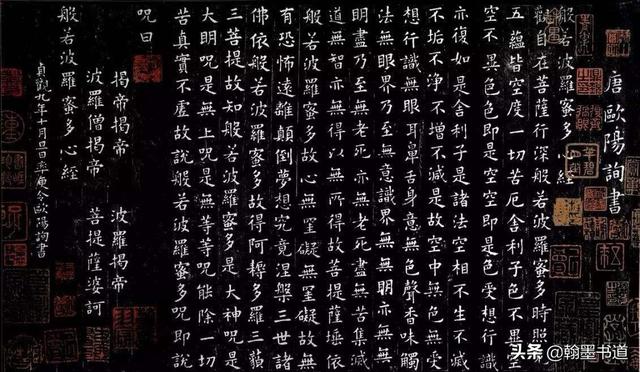 唐歐陽詢書
般若波羅蜜多心經
觀自在菩薩行深般若波羅蜜多時照
五蘊皆空度一切苦厄舍利子色不異空
空不異色色即是空空即是色受想行識
亦復如是舍利子是諸法空相不生不滅
不垢不淨不增不減是故空中無色無受
想行識無眼耳鼻舌身意無色聲香味觸
法無眼界乃至無意識界無無明亦無無
明盡乃至無老死亦無老死盡無苦集滅
道無智亦無得以無所得故菩提薩埵依
般若波羅蜜多故心無罣礙無罣礙故無
有恐怖遠離顛倒夢想究竟涅槃三世諸
佛依般若波羅蜜多故得阿耨多羅三藐
三菩提故知般若波羅蜜多是大神呪是
大明呪是無上呪是無等等呪能除一切
苦真實不虛故說般若波羅蜜多呪即說
呪曰
揭帝揭帝 波羅揭帝
波羅僧揭帝 菩提薩婆訶
般若波羅蜜多心經
貞觀九年十月旦日率更令歐陽詢書
头条 @翰墨书道